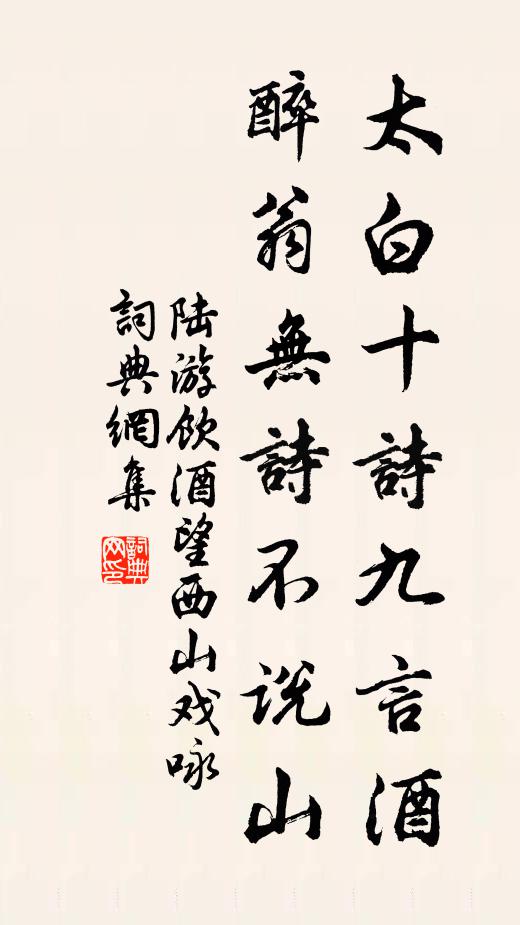 太白十詩九言酒
醉翁無詩不説山
陆游飲酒望西山戏咏
詞典網集
詞典网印